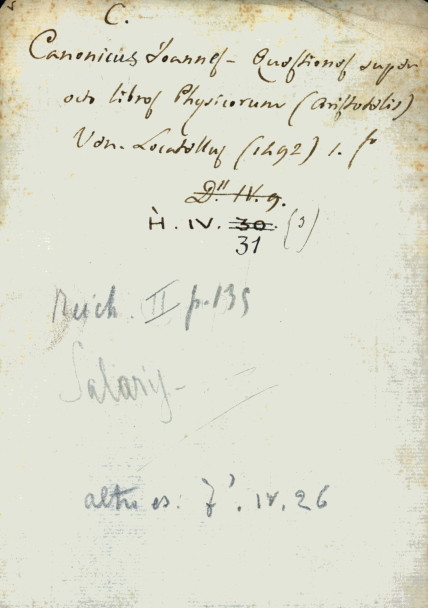 C.
Canonicus Joannes - Quæstiones super
octo libros Physicorum (Aristotelis)
Ven. Locatellus (1492) 1. fo
D". IV. 9.
H. IV. 30. (3)
31
Reich. II p. 135
altro es. Z'. IV. 26